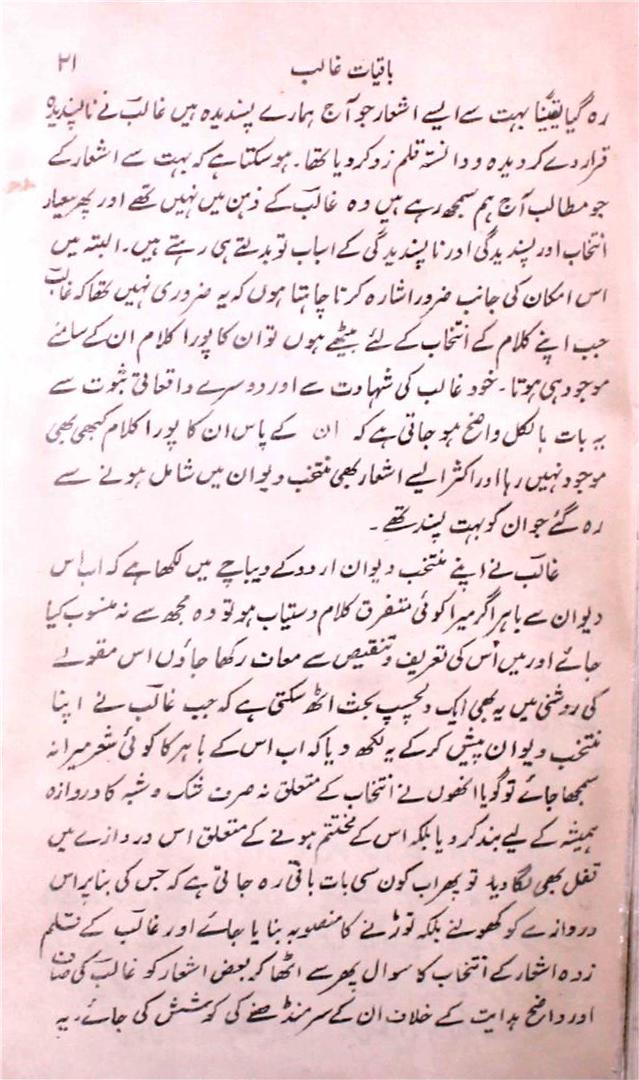 باقیات غالب ۲۱
رہ گیا یقیناً بہت سے ایسے اشعار جو آج ہمارے پسندیدہ ہیں غالبؔ نے ناپسندیدہ
قرار دے کر دیدہ و دانستہ قلم زد کر دیا تھا۔ ہو سکتا ہے کہ بہت سے اشعار کے
جو مطالب آج ہم سمجھ رہے ہیں وہ غالبؔ کے ذہن میں نہیں تھے اور پھر معیار
انتخاب اور پسندیدگی اور ناپسندیدگی کے اسباب تو بدلتے ہی رہتے ہیں۔ البتہ میں
اس امکان کی جانب ضرور اشارہ کرنا چاہتا ہوں کہ یہ ضروری نہیں تھا کہ غالبؔ
جب اپنے کلام کے انتخاب کے لئے بیٹھے ہوں تو ان کا پورا کلام ان کے سامنے
موجود ہی ہوتا۔ خود غالب کی شہادت سے اور دوسرے واقعاتی ثبوت سے
یہ بات بالکل واضح ہو جاتی ہے کہ ان کے پاس ان کا پورا کلام کبھی بھی
موجود نہیں رہا اور اکثر ایسے اشعار بھی منتخب دیوان میں شامل ہونے سے
رہ گئے جو ان کو بہت پسند تھے۔
غالبؔ نے اپنے منتخب دیوان اردو کے دیباچے میں لکھا ہے کہ اب اس
دیوان سے باہر اگر میرا کوئی متفرق کلام دستیاب ہو تو وہ مجھ سے نہ منسوب کیا
جائے اور میں اُس کی تعریف و تنقیص سے معاف رکھا جاؤں اس مقولے
کی روشنی میں یہ بھی ایک دلچسپ بحث اٹھ سکتی ہے کہ جب غالبؔ نے اپنا
منتخب دیوان پیش کر کے یہ لکھ دیا کہ اب اس کے باہر کا کوئی شعر میرا نہ
سمجھا جائے تو گویا انھوں نے انتخاب کے متعلق نہ صرف شک و شبہ کا دروازہ
ہمیشہ کے لیے بند کر دیا بلکہ اس کے مختتم ہونے کے متعلق اس دروازے میں
قفل بھی لگا دیا۔ تو پھر اب کون سی بات باقی رہ جاتی ہے کہ جس کی بنا پر اس
دروازے کو کھولنے بلکہ توڑنے کا منصوبہ بنایا جائے اور غالبؔ کے قلم
زدہ اشعار کے انتخاب کا سوال پھر سے اٹھا کر بعض اشعار کو غالبؔ کی صاف
اور واضح ہدایت کے خلاف ان کے سر منڈھنے کی کوشش کی جائے۔ یہ